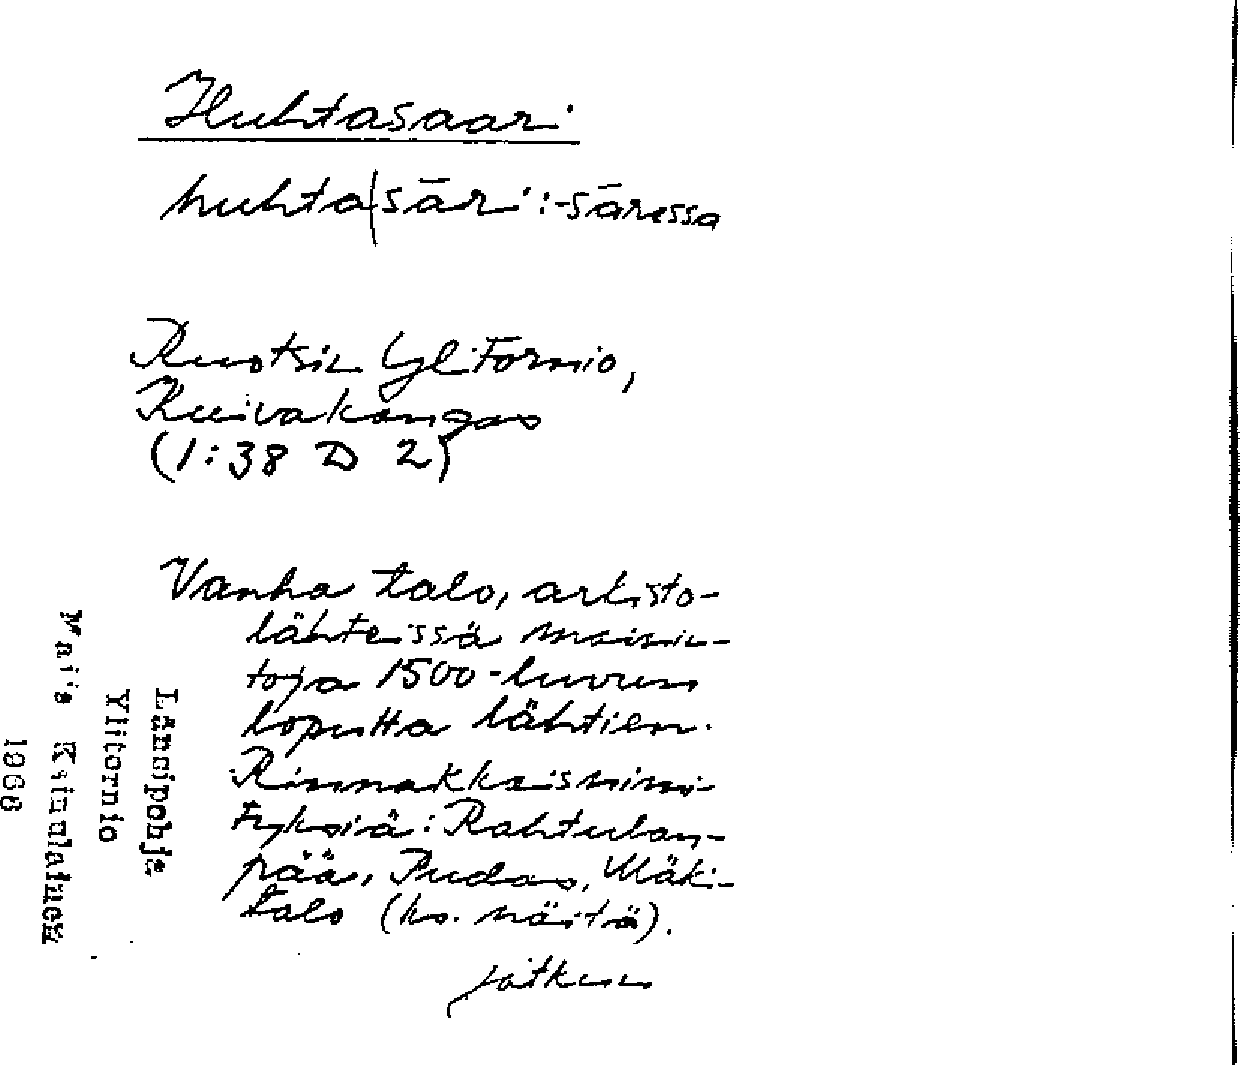 Huhtasaari
huhta|sāri : -sāressa
Ruotsin Ylitornio,
Kuivakangas
(1:38 D 2)
Vanha talo, arkisto-
lähteissä mainin-
toja 1500-luvun
lopulta lähtien.
Rinnakkaisnimi-
tyksiä: Rahtulan-
pää, Pudas, Mäki-
talo (ks. näitä).
jatkuu
Länsipohja
Ylitornio
Maija
1968